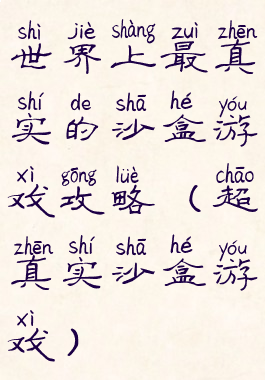 shì jiè shàng zuì zhēn
世界上最真
shí de shā hé yóu
实的沙盒游
xì gōng lüè chāo
戏攻略（超
zhēn shí shā hé yóu
真实沙盒游
xì
戏）